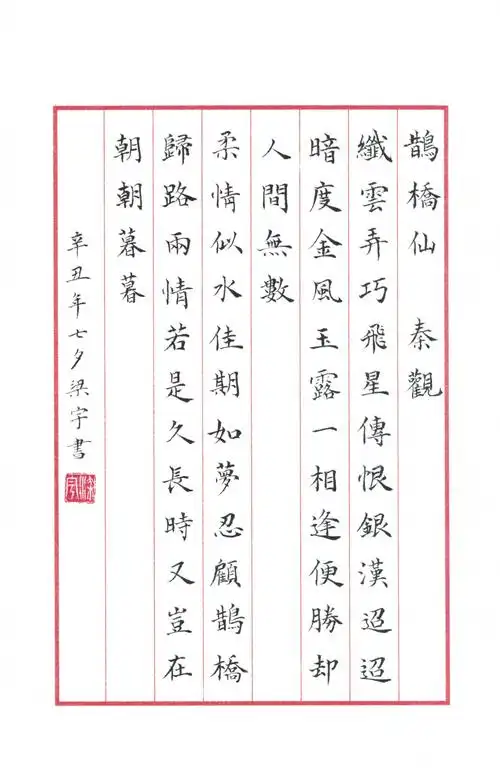 鵲橋仙 秦觀
纖雲弄巧飛星傳恨銀漢迢迢
暗度金風玉露一相逢便勝却
人間無數
柔情似水佳期如夢忍顧鵲橋
歸路兩情若是久長時又豈在
朝朝暮暮
辛丑年七夕梁宇書